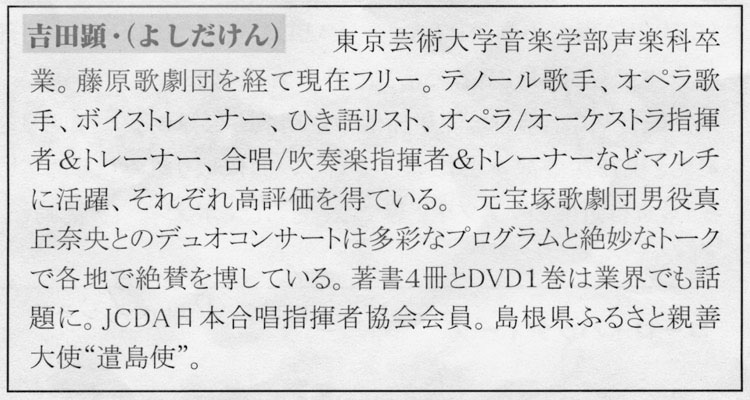 吉田顕・(よしだけん)　東京芸術大学音楽学部声楽科卒
業。藤原歌劇団を経て現在フリー。テノール歌手、オペラ歌
手、ボイストレーナー、ひき語リスト、オペラ/オーケストラ指揮
者＆トレーナー、合唱/吹奏楽指揮者＆トレーナーなどマルチ
に活躍、それぞれ高評価を得ている。　元宝塚歌劇団男役真
丘奈央とのデュオコンサートは多彩なプログラムと絶妙なトーク
で各地で絶賛を博している。著書4冊とDVD1巻は業界でも話
題に。JCDA日本合唱指揮者協会会員。島根県ふるさと親善
大使“遣島使”。